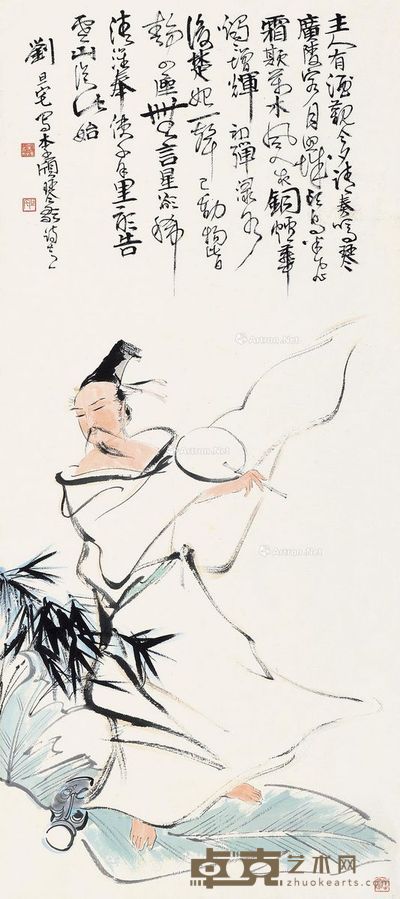 主人有酒歡今夕請奏鳴琴
廣陵客月照城頭烏半飛
霜凄萬木風入衣銅爐華
燭增輝初彈淥水
後楚妃一聲已動物皆
靜四座無言星欲稀
清淮奉使千餘里敢告
雲山從此始
劉旦宅寫李頎琴歌詩意
Artron.Net
Artron.Net
卓克艺术网
zhuokearts.com